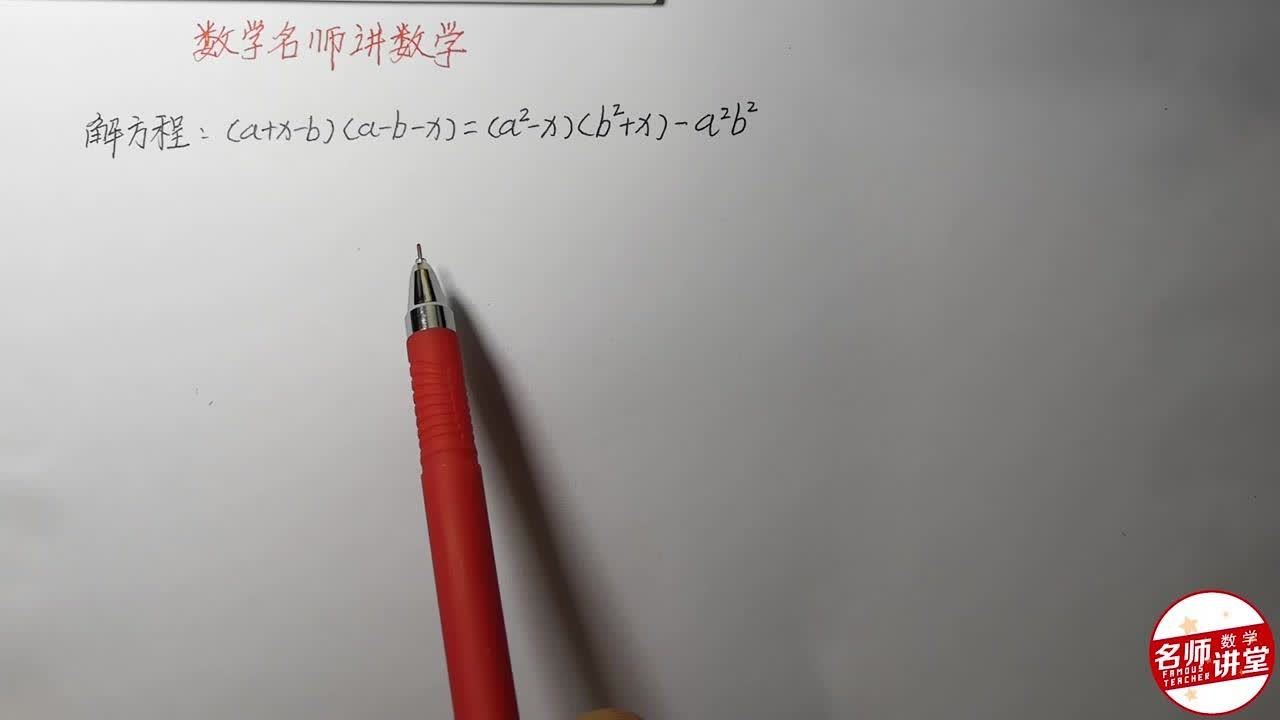 数学名师讲数学
解方程：(a+x-b)(a-b-x)=(a²-x)(b²+x)-a²b²
名师 数学
FAMOUS 讲堂
TEACHER